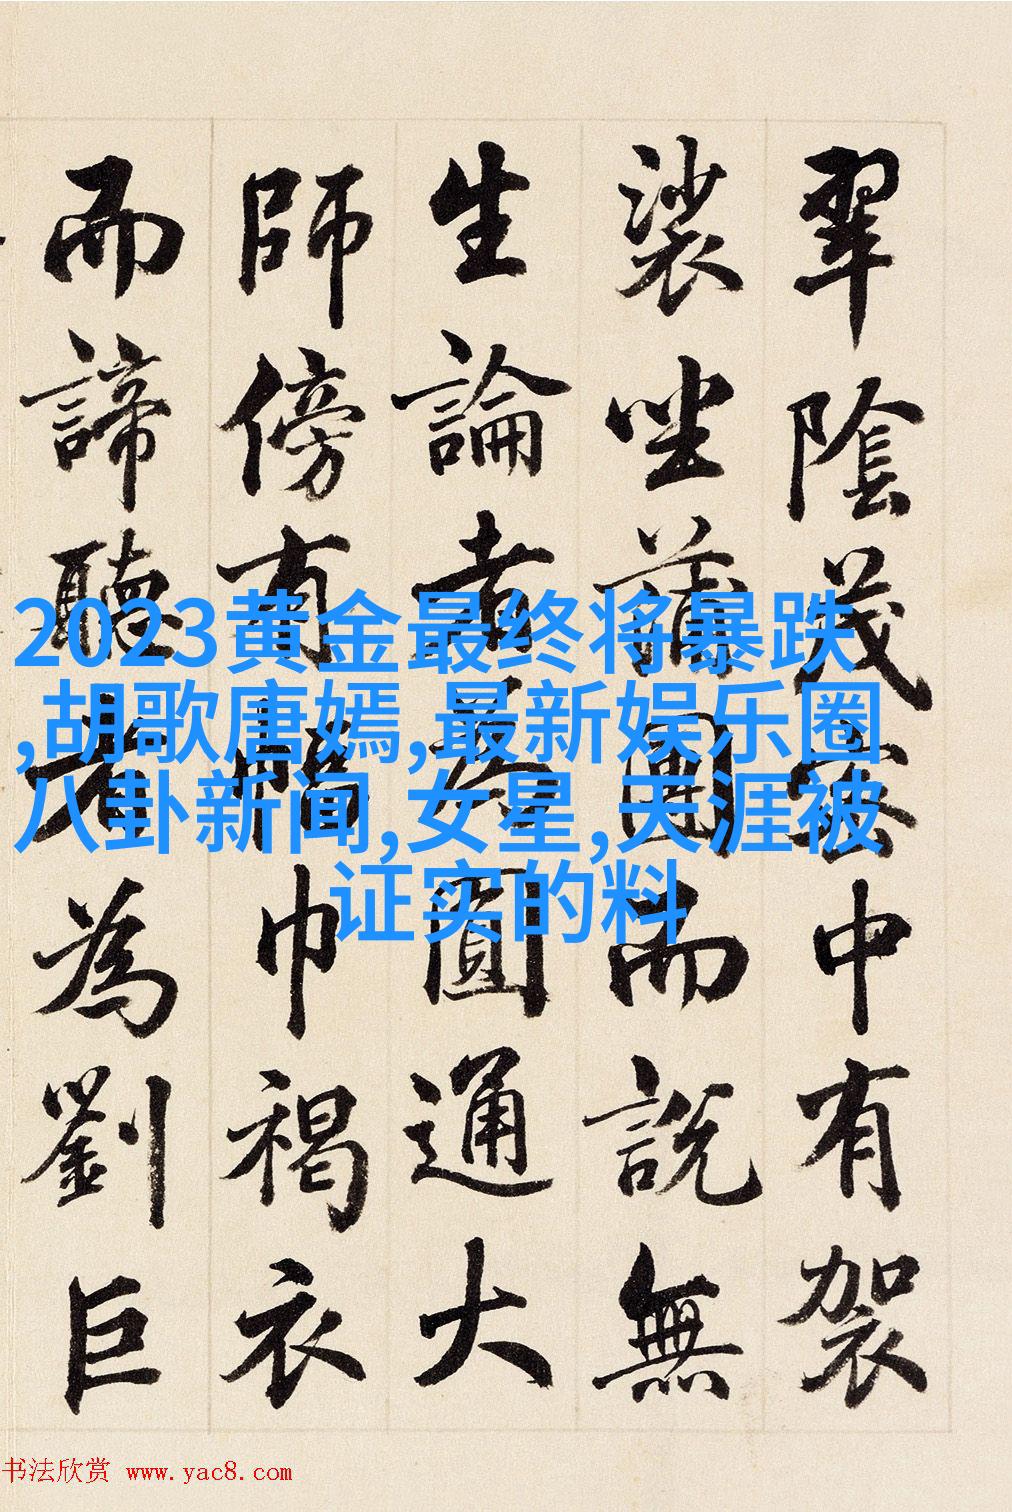 翠陰茂密中有袈
裟坐蒲團而說無
生論者為圓通大
師傍有幅巾褐衣
而諦聽者為劉巨
2023黄金最终将暴跌
,胡歌唐嫣,最新娱乐圈
八卦新闻,女星,天涯被
证实的料
书法欣赏 www.yac8.com